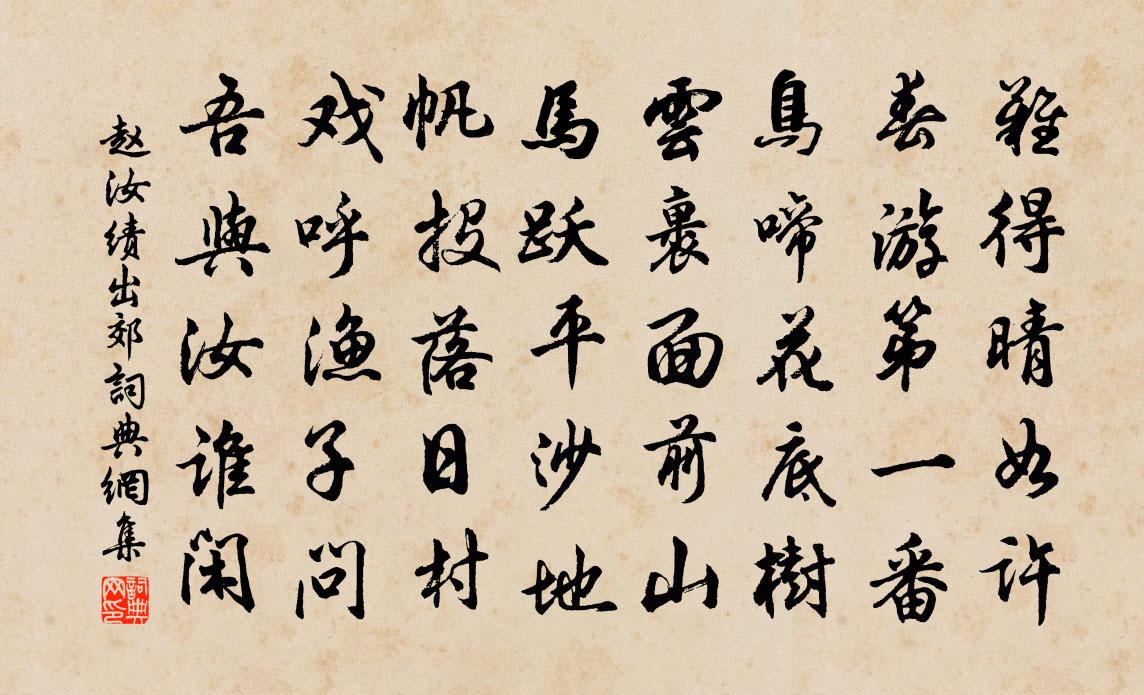 難得晴如许
春游第一番
鳥啼花底樹
雲裏面前山
馬跃平沙地
帆投落日村
戏呼渔子問
吾與汝誰闲
赵汝绩出郊詞典網集
詞典网印